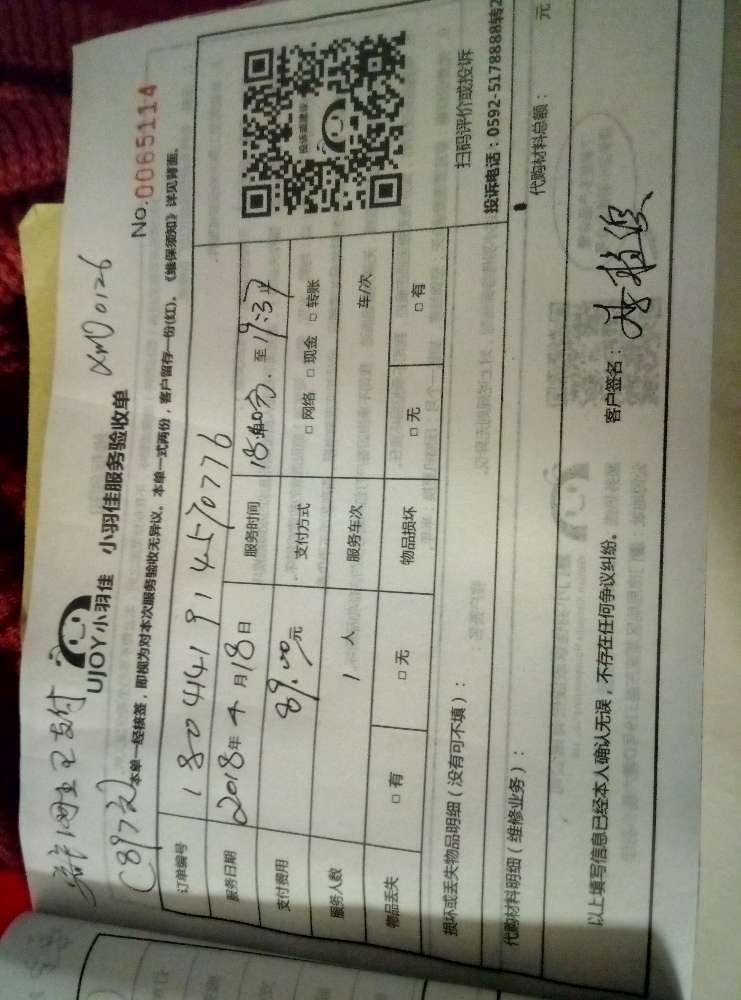 网上已支付
(89元)
UJOY小羽佳 小羽佳服务验收单 XMD0126
No.0065114
本单一经核签，即视为对本次服务验收无异议。本单一式两份，客户留存一份(红)。《维保须知》详见背面。
订单编号 1804141914570776
服务日期 2018年4月18日 服务时间 至19:37止
支付费用 89.00元 支付方式 □网络 □现金 □转账
服务人数 1人 服务车次 车/次
物品丢失 □有 □无 物品损坏 □无 □有
扫码评价或投诉
投诉电话：0592-5178888转2
损坏或丢失物品明细（没有可不填）：
代购材料明细（维修业务）： 代购材料总额： 元
以上填写信息已经本人确认无误，不存在任何争议纠纷。 客户签名：